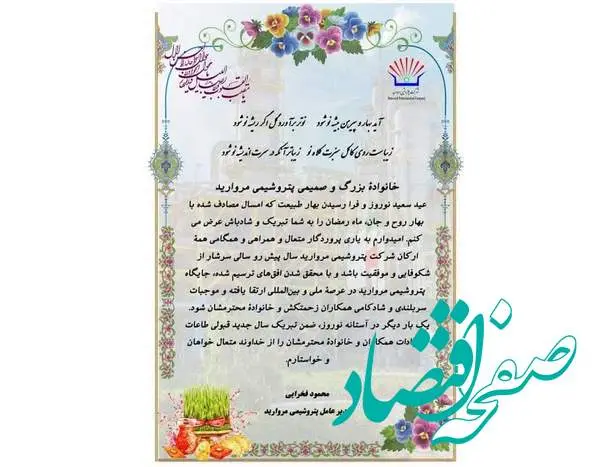 آید بهار و پیرهن بیشه نو شود
نوتر برآورد گل اگر ریشه نو شود
زیباست روی کاکل سبزت کلاه نو
زیباتر آنکه در سرت اندیشه نو شود
خانوادهٔ بزرگ و صمیمی پتروشیمی مروارید
عید سعید نوروز و فرا رسیدن بهار طبیعت که امسال مصادف شده با
بهار روح و جان، ماه رمضان را به شما تبریک و شادباش عرض می
کنم. امیدوارم به یاری پروردگار متعال و همراهی و همگامی همهٔ
ارکان شرکت پتروشیمی مروارید سال پیش رو سالی سرشار از
شکوفایی و موفقیت باشد و با محقق شدن افق‌های ترسیم شده، جایگاه
پتروشیمی مروارید در عرصهٔ ملی و بین‌المللی ارتقا یافته و موجبات
سربلندی و شادکامی همکاران زحمتکش و خانوادهٔ محترمشان شود.
یک بار دیگر در آستانه نوروز، ضمن تبریک سال جدید قبولی طاعات
همکاران و خانوادهٔ محترمشان را از خداوند متعال خواهان
و خواستارم.
محمود فخرایی
عامل پتروشیمی مروارید
صفحه اقتصاد